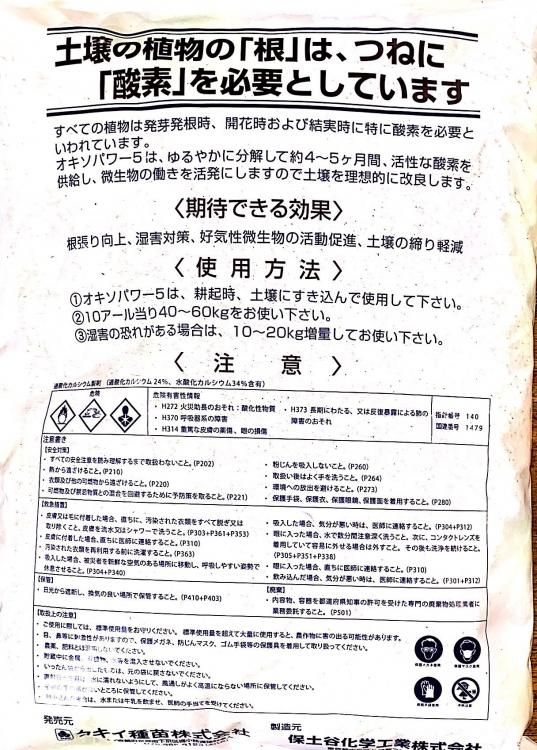 土壌の植物の「根」は、つねに
「酸素」を必要としています
すべての植物は発芽発根時、開花時および結実時に特に酸素を必要と
いわれています。
オキソパワー5は、ゆるやかに分解して約4～5ヶ月間、活性な酸素を
供給し、微生物の働きを活発にしますので土壌を理想的に改良します。
〈期待できる効果〉
根張り向上、湿害対策、好気性微生物の活動促進、土壌の締り軽減
〈使用方法〉
①オキソパワー5は、耕起時、土壌にすき込んで使用して下さい。
②10アール当り40～60kgをお使い下さい。
③湿害の恐れがある場合は、10～20kg増量してお使い下さい。
〈注意〉
過酸化カルシウム製剤 (過酸化カルシウム 24%、水酸化カルシウム34%含有)
危険
危険有害性情報
・H272 火災助長のおそれ:酸化性物質
・H370 呼吸器系の障害
・H314 重篤な皮膚の薬傷、眼の損傷
・H373 長期にわたる、又は反復暴露による肺の
障害のおそれ
指針番号 140
国連番号 1479
注意書き
【安全対策】
・すべての安全注意を読み理解するまで取扱わないこと。(P202)
・熱から遠ざけること。(P210)
・衣類及び他の可燃物から遠ざけること。(P220)
・可燃物及び禁忌物質との混合を回避するために予防策を取ること。(P221)
・粉じんを吸入しないこと。(P260)
・取扱い後はよく手を洗うこと。(P264)
・環境への放出を避けること。(P273)
・保護手袋、保護衣、保護眼鏡、保護面を着用すること。(P280)
【救急措置】
・皮膚又は毛に付着した場合、直ちに、汚染された衣類をすべて脱ぎ又は
取り除くこと。皮膚を流水又はシャワーで洗うこと。(P303+P361+P353)
・皮膚に付着した場合、直ちに医師に連絡すること。(P310)
・汚染された衣類を再利用する前に洗濯すること。(P363)
・吸入した場合、被災者を新鮮な空気のある場所に移動し、呼吸しやすい姿勢で
休息させること。(P304+P340)
・吸入した場合、気分が悪い時は、医師に連絡すること。(P304+P312)
・眼に入った場合、水で数分間注意深く洗うこと。次に、コンタクトレンズを
着用していて容易に外せる場合は外すこと。その後も洗浄を続けること。
(P305+P351+P338)
・眼に入った場合、直ちに医師に連絡すること。(P310)
・飲み込んだ場合、気分が悪い時は、医師に連絡すること。(P301+P312)
【保管】
・日光から遮断し、換気の良い場所で保管すること。(P410+P403)
【廃棄】
・内容物、容器を都道府県知事の許可を受けた専門の廃棄物処理業者に
業務委託すること。(P501)
【取扱上の注意】
・ご使用に際しては、標準使用量をお守りください。標準使用量を超えて大量に使用すると、農作物に害の出る可能性があります。
・目、鼻等に刺激性がありますので、保護メガネ、防じんマスク、ゴム手袋等の保護具を着用して取り扱ってください。
・農薬、肥料とは混用しないでください。
・貯蔵中に金属、有機物、水等を混入させないでください。
・いったん袋から出したものは、元の袋に戻さないでください。
水に濡れないようにして、風通しがよく高温にならない場所に保管してください。
ところに保管してください。
場合は、水または牛乳を飲ませ、医師の手当てを受けてください。
保護メガネ着用
保護マスク着用
発売元
タキイ種苗株式会社
製造元
保土谷化学工業株式会社